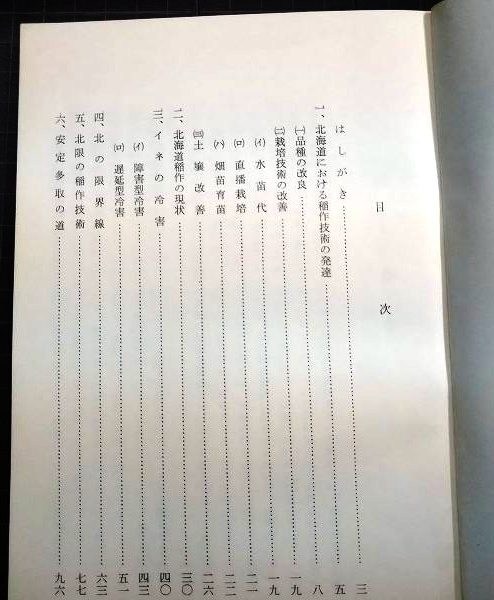 目次
はしがき……三
一、北海道における稲作技術の発達……五
㈠品種の改良……八
㈡栽培技術の改善……一九
(イ)水苗代……一九
(ロ)直播栽培……二一
(ハ)畑苗育苗……二二
㈢土壌改善……二六
二、北海道稲作の現状……三〇
三、イネの冷害……四〇
(イ)障害型冷害……四三
(ロ)遅延型冷害……五一
四、北の限界線……六三
五、北限の稲作技術……七七
六、安定多取の道……九六